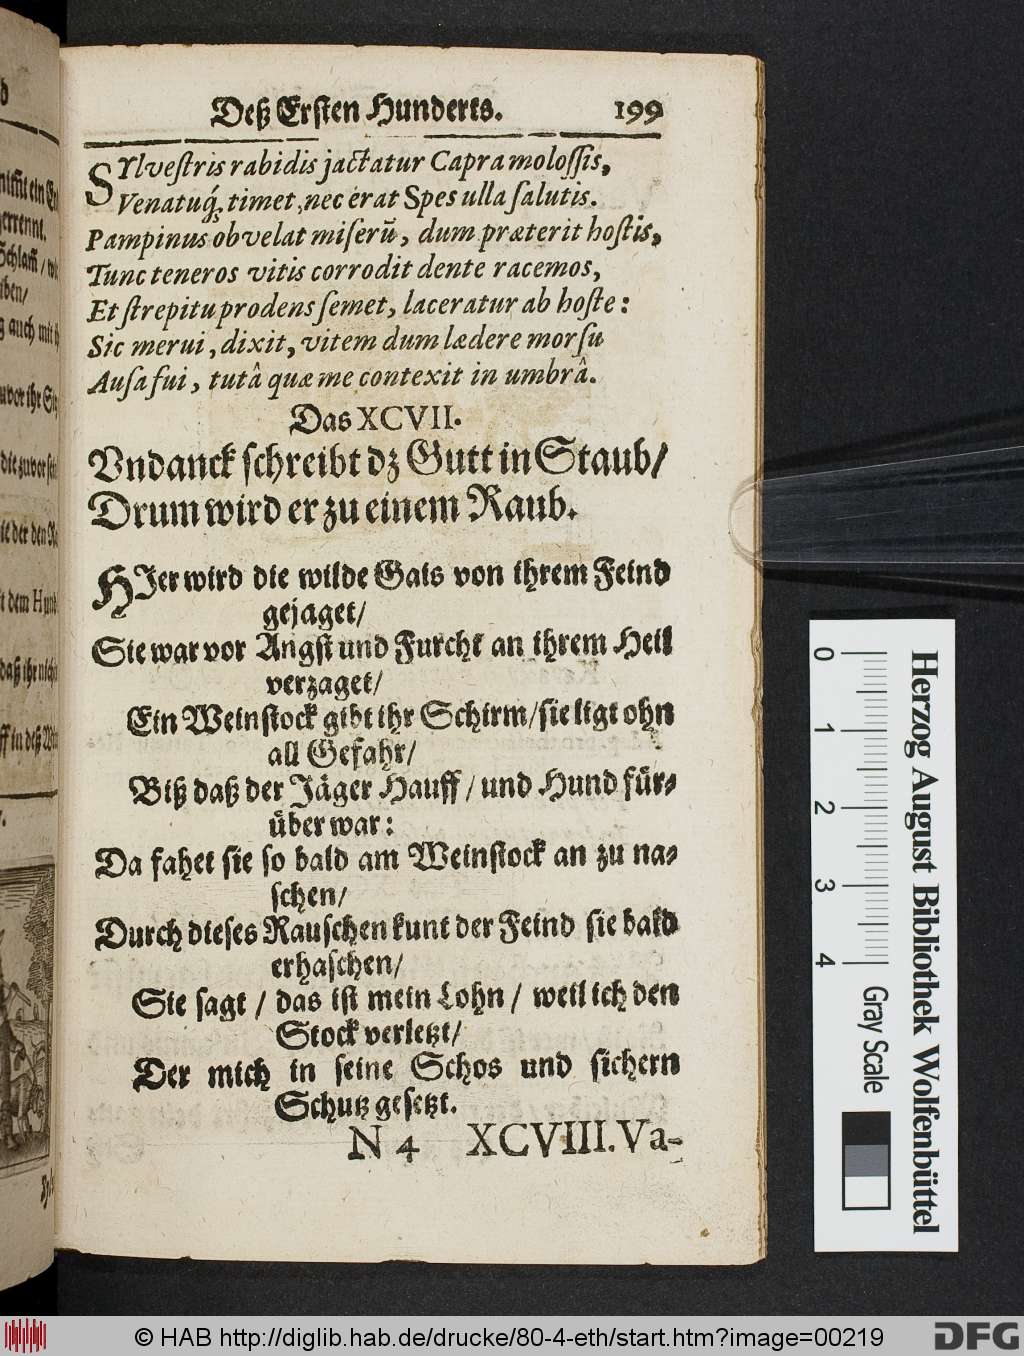 Deß Ersten Hunderts. 199
SYlvestris rabidis jactatur Capra molossis,
Venatuq́; timet, nec erat Spes ulla salutis.
Pampinus obvelat miserū, dum præterit hostis,
Tunc teneros vitis corrodit dente racemos,
Et strepitu prodens semet, laceratur ab hoste:
Sic merui, dixit, vitem dum lædere morsu
Ausa fui, tutâ quæ me contexit in umbrâ.
Das XCVII.
Vndanck schreibt dz Gutt in Staub/
Drum wird er zu einem Raub.
HIer wird die wilde Gais von ihrem Feind
gejaget/
Sie war vor Angst und Furcht an ihrem Heil
verzaget/
Ein Weinstock gibt ihr Schirm/ sie ligt ohn
all Gefahr/
Biß daß der Jäger Hauff / und Hund für-
über war:
Da fahet sie so bald am Weinstock an zu na-
schen/
Durch dieses Rauschen kunt der Feind sie bald
erhaschen/
Sie sagt / das ist mein Lohn / weil ich den
Stock verletzt/
Der mich in seine Schos und sichern
Schutz gesetzt.
N 4 XCVIII. Va-
0 1 2 3 4
Gray Scale
Herzog August Bibliothek Wolfenbüttel
© HAB http://diglib.hab.de/drucke/80-4-eth/start.htm?image=00219
DFG